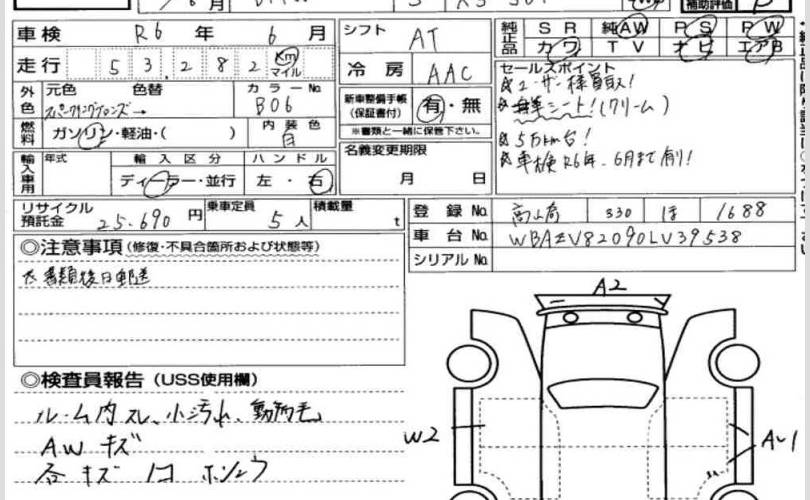 補助評価
車検 R6 年 6 月
シフト AT
純正品 SR 純AW PS PW
カワ TV ナビ エアB
走行 53,282 Km マイル
冷房 AAC
セールスポイント
ユーザー様買取!
シート!(クリーム)
5万km台!
車検R6年、6月まで有り!
外色 元色 色替 カラーNo.
スパークリングブロンズ→ B06
新車整備手帳(保証書付) 有・無
※書類と一緒に保管下さい。
燃料 ガソリン・軽油・( ) 内装色
白
名義変更期限
月 日
輸入車用 年式 輸入区分 ハンドル
ディーラー・並行 左・右
リサイクル預託金 25,690 円 乗車定員 5 人 積載量 t
登録No. 330 ほ 1688
車台No. WBAEV82090LV39538
シリアルNo.
◎注意事項(修復・不具合箇所および状態等)
書類後日郵送
◎検査員報告(USS使用欄)
ルーム内スレ、小汚れ、動物毛
AWキズ
各キズ
A2
W2
AU1